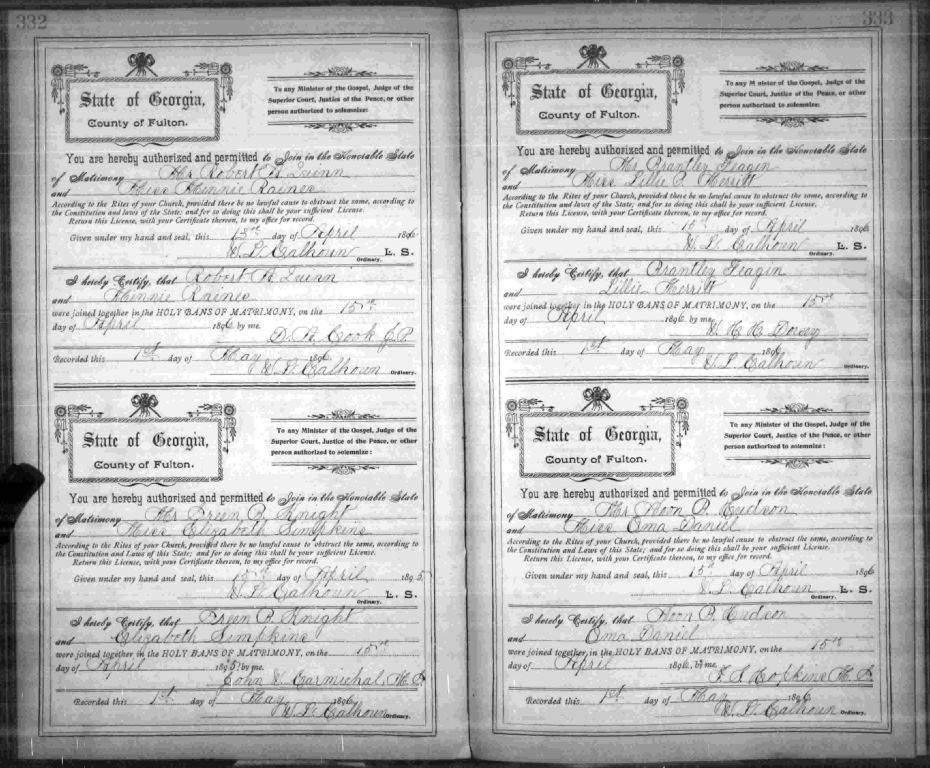 332
State of Georgia,
County of Fulton.
To any Minister of the Gospel, Judge of the
Superior Court, Justice of the Peace, or other
person authorized to solemnize:
You are hereby authorized and permitted to Join in the Honorable State
of Matrimony Mr Robert H Quinn
and Miss Minnie Raines
According to the Rites of your Church, provided there be no lawful cause to obstruct the same, according to
the Constitution and laws of the State; and for so doing this shall be your sufficient License.
Return this License, with your Certificate thereon, to my office for record.
Given under my hand and seal, this 13th day of April 1896
W. L. Calhoun L. S.
Ordinary.
I hereby Certify, that Robert H Quinn
and Minnie Raines
were joined together in the HOLY BANS OF MATRIMONY, on the 15th
day of April 1896 by me.
D. A. Cook J.P.
Recorded this 1st day of May 1896
W. L. Calhoun Ordinary.
State of Georgia,
County of Fulton.
To any Minister of the Gospel, Judge of the
Superior Court, Justice of the Peace, or other
person authorized to solemnize:
You are hereby authorized and permitted to Join in the Honorable State
of Matrimony Mr Green B. Knight
and Miss Elizabeth Simpkins
According to the Rites of your Church, provided there be no lawful cause to obstruct the same, according to
the Constitution and Laws of this State; and for so doing this shall be your sufficient License.
Return this License, with your Certificate thereon, to my office for record.
Given under my hand and seal, this 15th day of April 1895
W. L. Calhoun L. S.
Ordinary.
I hereby Certify, that Green B. Knight
and Elizabeth Simpkins
were joined together in the HOLY BANS OF MATRIMONY, on the 15th
day of April 1895, by me.
John W. Carmichal, M. G.
Recorded this 1st day of May 1896
W. L. Calhoun Ordinary.
333
State of Georgia,
County of Fulton.
To any Minister of the Gospel, Judge of the
Superior Court, Justice of the Peace, or other
person authorized to solemnize:
You are hereby authorized and permitted to Join in the Honorable State
of Matrimony Mr Brantley Feagin
and Miss Lillie C. Merritt
According to the Rites of your Church, provided there be no lawful cause to obstruct the same, according to
the Constitution and laws of the State; and for so doing this shall be your sufficient License.
Return this License, with your Certificate thereon, to my office for record.
Given under my hand and seal, this 15th day of April 1896
W. L. Calhoun L. S.
Ordinary.
I hereby Certify, that Brantley Feagin
and Lillie Merritt
were joined together in the HOLY BANS OF MATRIMONY, on the 15th
day of April 1896 by me.
W. H. H. Dorsey
Recorded this 1st day of May 1896
W. L. Calhoun Ordinary.
State of Georgia,
County of Fulton.
To any Minister of the Gospel, Judge of the
Superior Court, Justice of the Peace, or other
person authorized to solemnize:
You are hereby authorized and permitted to Join in the Honorable State
of Matrimony Mr P. Hudson
and Miss Ema Daniel
According to the Rites of your Church, provided there be no lawful cause to obstruct the same, according to
the Constitution and Laws of this State; and for so doing this shall be your sufficient License.
Return this License, with your Certificate thereon, to my office for record.
Given under my hand and seal, this 15th day of April 1896
W. L. Calhoun L. S.
Ordinary.
I hereby Certify, that P. Hudson
and Ema Daniel
were joined together in the HOLY BANS OF MATRIMONY, on the 15th
day of April 1896, by me.
Hopkins M. G.
Recorded this 1st day of May 1896
W. L. Calhoun Ordinary.